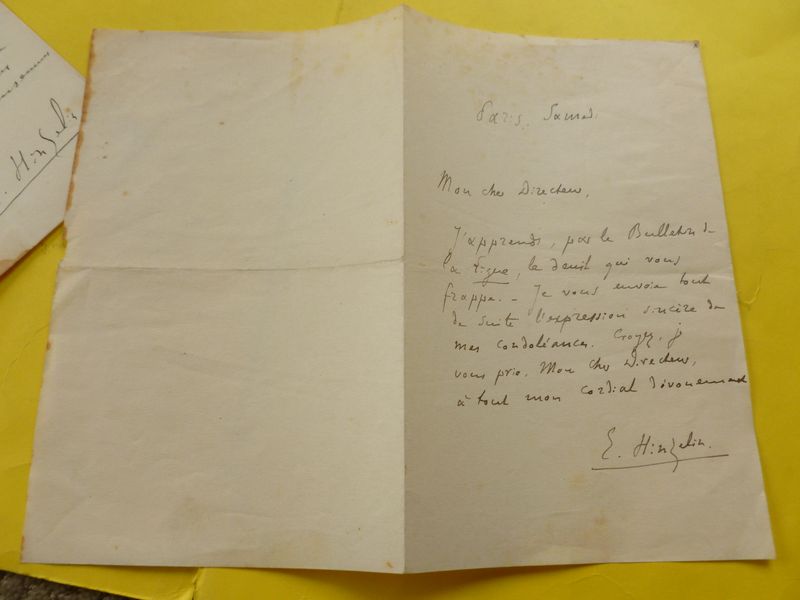 Paris. Samedi
Mon cher Directeur,
J'apprends, par le Bulletin de
la Ligue, le deuil qui vous
frappe. – Je vous envoie tout
de suite l'expression sincère de
mes condoléances. Croyez, je
vous prie, Mon cher Directeur,
à tout mon cordial dévouement
E. Hinzelin.
Hinzelin